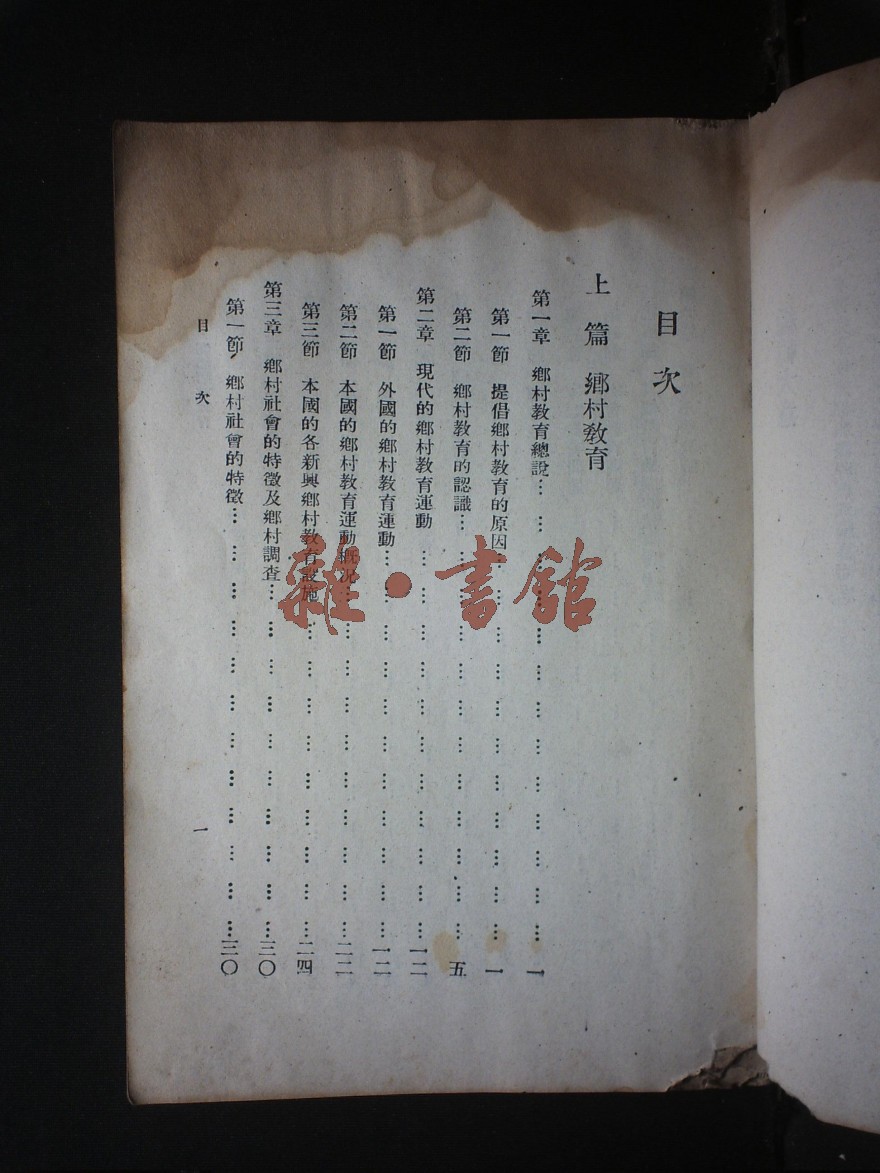 目次
上篇 鄉村教育
第一章 鄉村教育總說… … … … … … … … … … … … … …一
第一節 提倡鄉村教育的原因… … … … … … … … … … … …一
第二節 鄉村教育的認識… … … … … … … … … … … … …五
第二章 現代的鄉村教育運動… … … … … … … … … … … …一二
第一節 外國的鄉村教育運動… … … … … … … … … … … …一二
第二節 本國的鄉村教育運動概況… … … … … … … … … … …二二
第三節 本國的各新興鄉村教育設施… … … … … … … … … …二四
第三章 鄉村社會的特徵及鄉村調查… … … … … … … … … …三〇
第一節 鄉村社會的特徵… … … … … … … … … … … … …三〇
目次
一
雜·書館